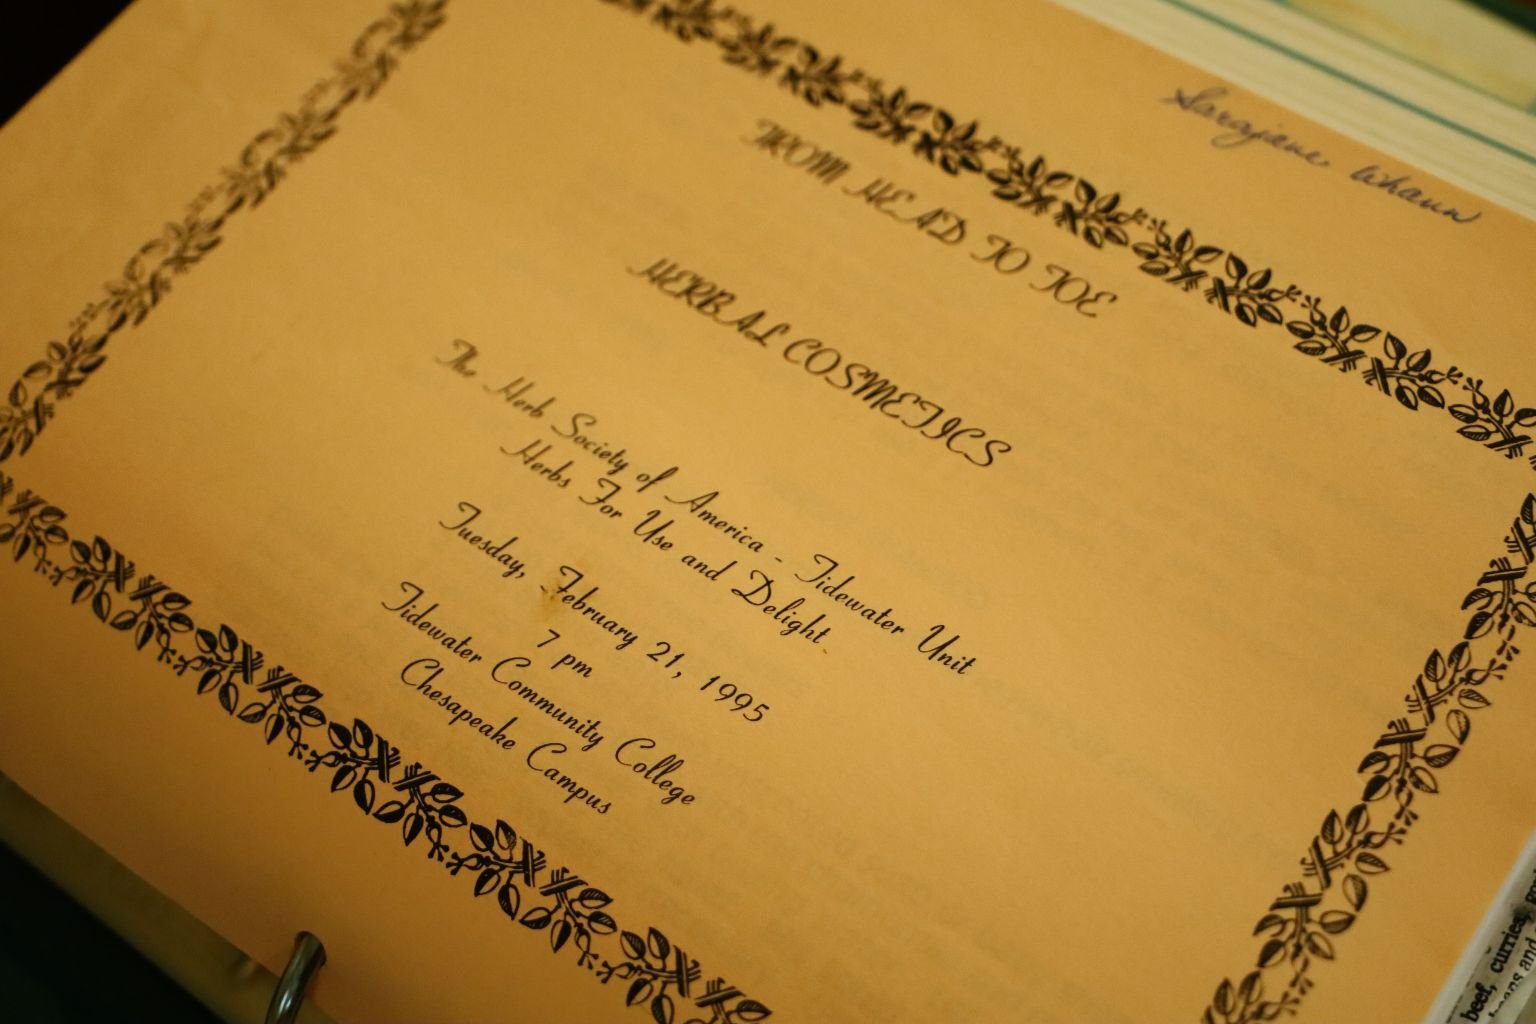 Sarajane Whaun
FROM HEAD TO TOE
HERBAL COSMETICS
The Herb Society of America - Tidewater Unit
Herbs For Use and Delight
Tuesday, February 21, 1995
7 pm
Tidewater Community College
Chesapeake Campus
beef, curries,
and